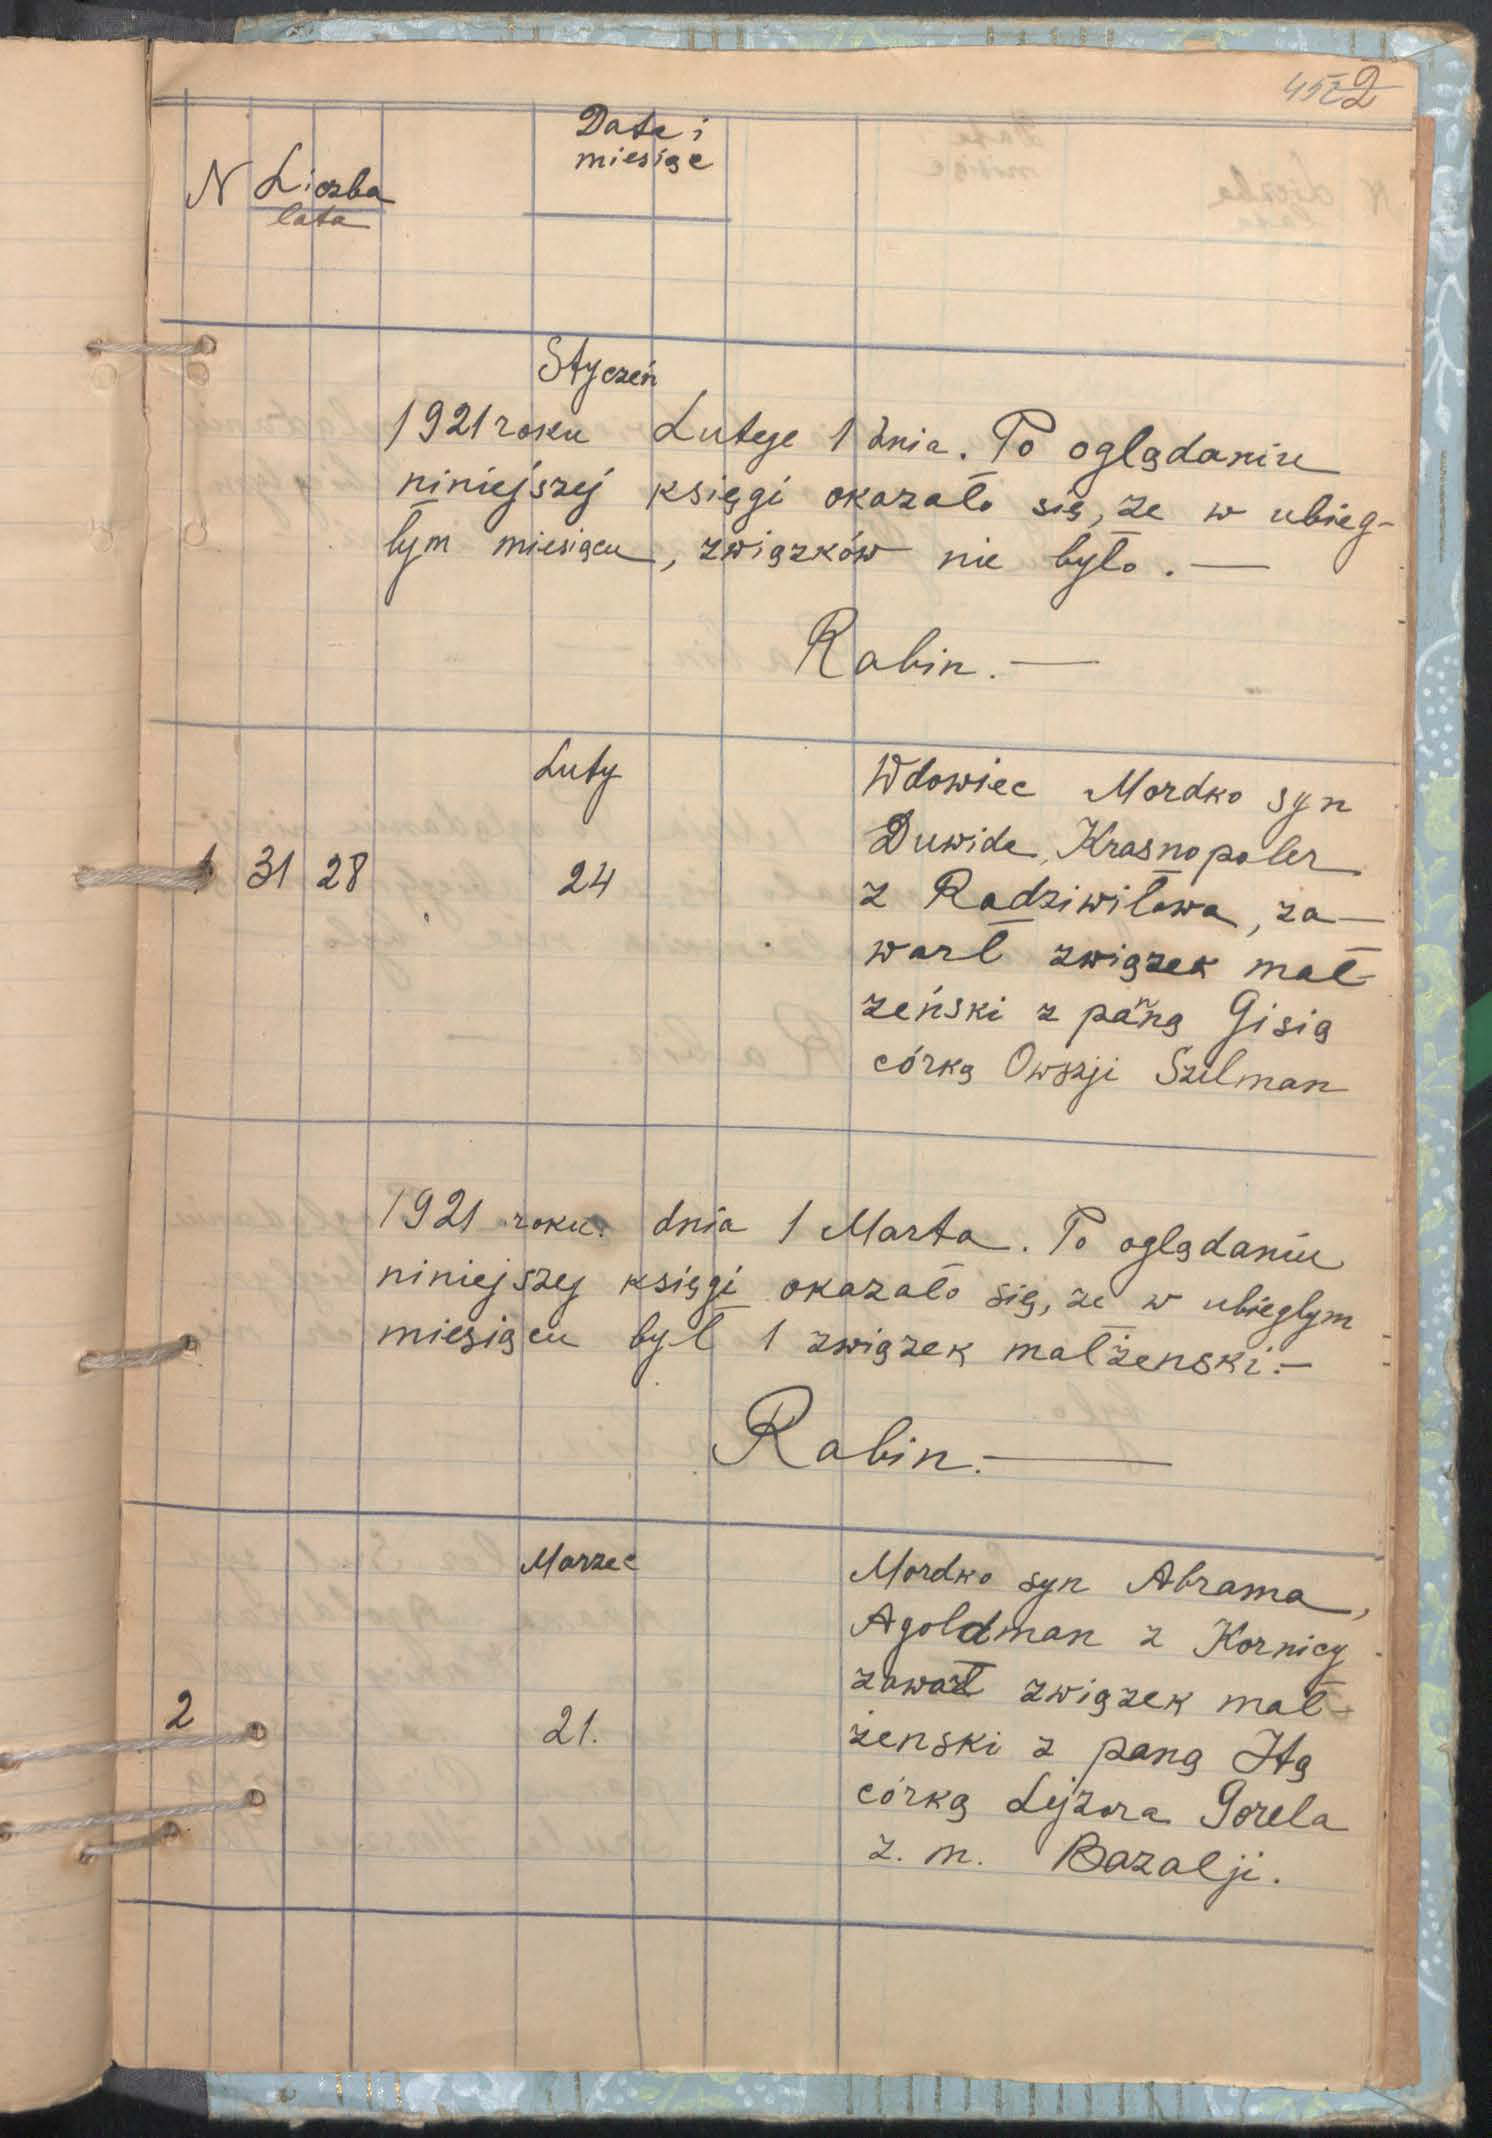 2
N Liczba
lata
Data i
miesiąc
Styczeń
1921 roku Lutego 1 dnia. Po oglądaniu
niniejszej księgi okazało się, ze w ubieg-
łym miesiącu, związków nie było. —
Rabin. —
Luty
1 31 28 24
Wdowiec Mordko syn
Duwida, Krasnopoler
z Radziwiłowa, za-
warł związek mał-
zeński z panną Gisią
córką Owszji Szelman
1921 roku dnia 1 Marta. Po oglądaniu
niniejszej księgi okazało się, ze w ubiegłym
miesiącu był 1 związek małżenski. —
Rabin. —
Marzec
2 21.
Mordko syn Abrama,
Agoldman z Kornicy
zawarł związek mał-
żenski z paną Itą
córką Lejzora Gorela
z. m. Bazalji.